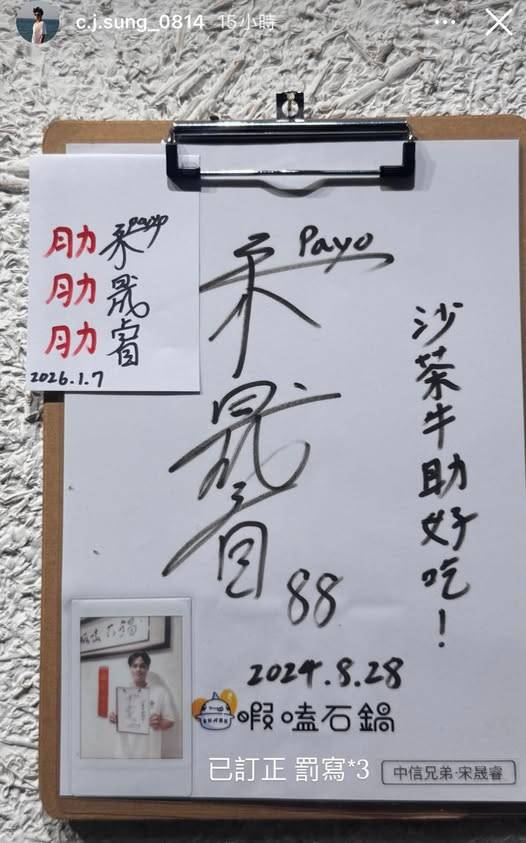 c.j.sung_0814 15小時
肋 宋 Payo
肋 晟
肋 睿
2026.1.7
Payo
宋晟睿
88
沙茶牛助好吃！
2024.8.28
暇嗑石鍋
已訂正 罰寫*3
中信兄弟·宋晟睿